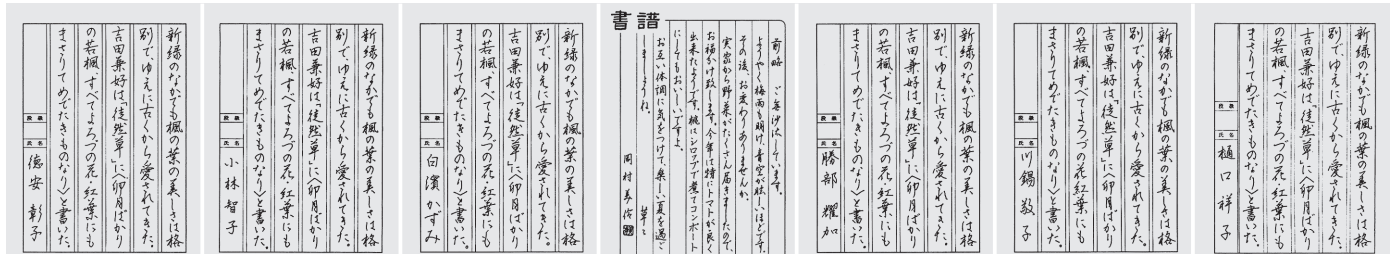 新緑のなかでも楓の葉の美しさは格
別で、ゆえに古くから愛されてきた。
吉田兼好は「徒然草」に〈卯月ばかり
の若楓、すべてよろづの花・紅葉にも
まさりてめでたきものなり〉と書いた。
段級
氏名 徳安 彰子
新緑のなかでも楓の葉の美しさは格
別で、ゆえに古くから愛されてきた。
吉田兼好は「徒然草」に〈卯月ばかり
の若楓、すべてよろづの花・紅葉にも
まさりてめでたきものなり〉と書いた。
段級
氏名 小林 智子
新緑のなかでも楓の葉の美しさは格
別で、ゆえに古くから愛されてきた。
吉田兼好は「徒然草」に〈卯月ばかり
の若楓、すべてよろづの花・紅葉にも
まさりてめでたきものなり〉と書いた。
段級
氏名 白濱 かずみ
書譜
前略 ご無沙汰しています。
ようやく梅雨も明け、青空が眩しいほどです。
その後、お変わりありませんか。
実家から野菜がたくさん届きましたので、
お福分け致します。今年は特にトマトが良く
出来たようです。桃はシロップで煮てコンポート
にしてもおいしいですよ。
お互い体調に気をつけて、楽しい夏を過ご
しましょうね。 草々
岡村 美佑
新緑のなかでも楓の葉の美しさは格
別で、ゆえに古くから愛されてきた。
吉田兼好は「徒然草」に〈卯月ばかり
の若楓、すべてよろづの花・紅葉にも
まさりてめでたきものなり〉と書いた。
段級
氏名 勝部 耀加
新緑のなかでも楓の葉の美しさは格
別で、ゆえに古くから愛されてきた。
吉田兼好は「徒然草」に〈卯月ばかり
の若楓、すべてよろづの花・紅葉にも
まさりてめでたきものなり〉と書いた。
段級
氏名 川錫 敦子
新緑のなかでも楓の葉の美しさは格
別で、ゆえに古くから愛されてきた。
吉田兼好は「徒然草」に〈卯月ばかり
の若楓、すべてよろづの花・紅葉にも
まさりてめでたきものなり〉と書いた。
段級
氏名 樋口 祥子